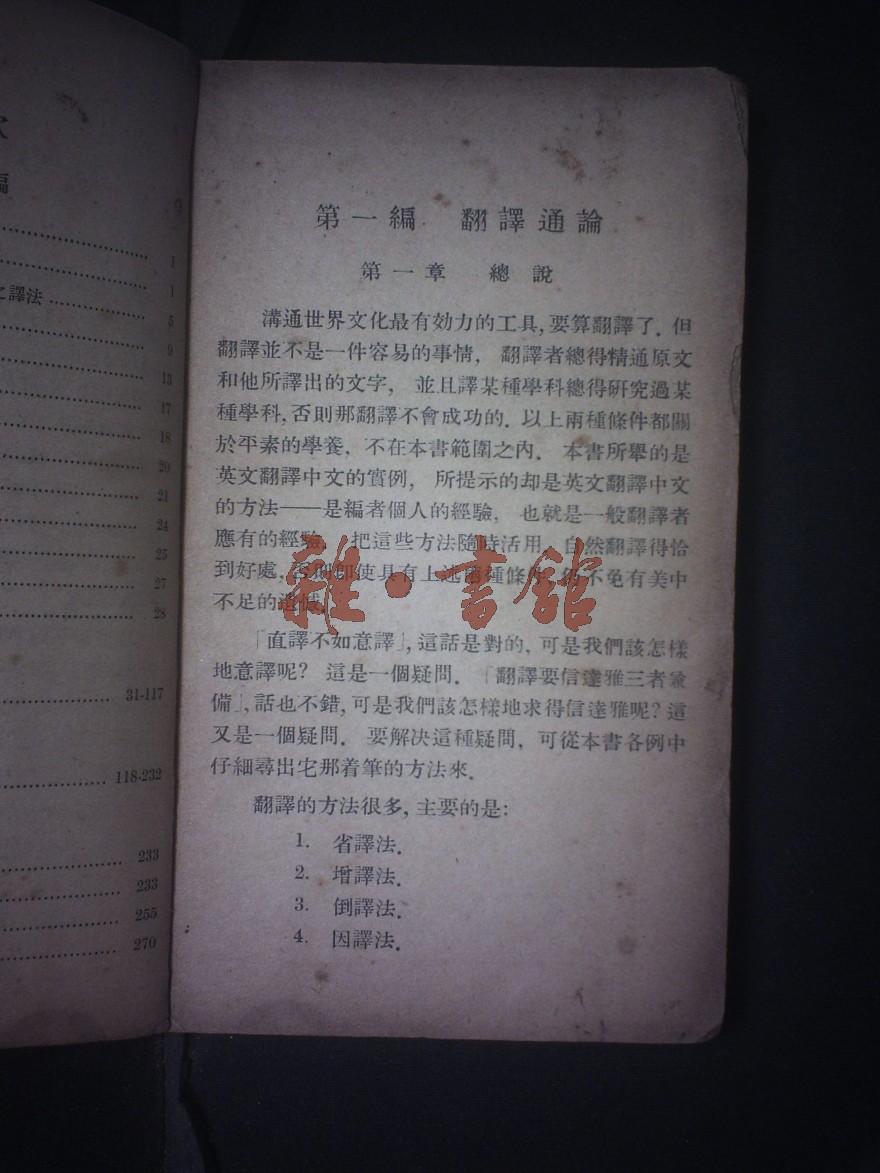 次
編
1
1
之譯法 5
9
13
17
18
20
21
24
25
27
28
31-117
118-232
233
233
255
270
第一編 翻譯通論
第一章 總說
溝通世界文化最有効力的工具,要算翻譯了. 但
翻譯並不是一件容易的事情, 翻譯者總得精通原文
和他所譯出的文字, 並且譯某種學科總得研究過某
種學科,否則那翻譯不會成功的. 以上兩種條件都關
於平素的學養, 不在本書範圍之內. 本書所舉的是
英文翻譯中文的實例, 所提示的却是英文翻譯中文
的方法——是編者個人的經驗, 也就是一般翻譯者
應有的經驗. 把這些方法隨時活用, 自然翻譯得恰
到好處,否則卽使具有上述兩種條件,仍不免有美中
不足的遺憾.
「直譯不如意譯」,這話是對的, 可是我們該怎樣
地意譯呢? 這是一個疑問. 「翻譯要信達雅三者兼
備」,話也不錯,可是我們該怎樣地求得信達雅呢?這
又是一個疑問. 要解决這種疑問, 可從本書各例中
仔細尋出它那着筆的方法來.
翻譯的方法很多,主要的是:
1. 省譯法.
2. 增譯法.
3. 倒譯法.
4. 因譯法.
雜·書館